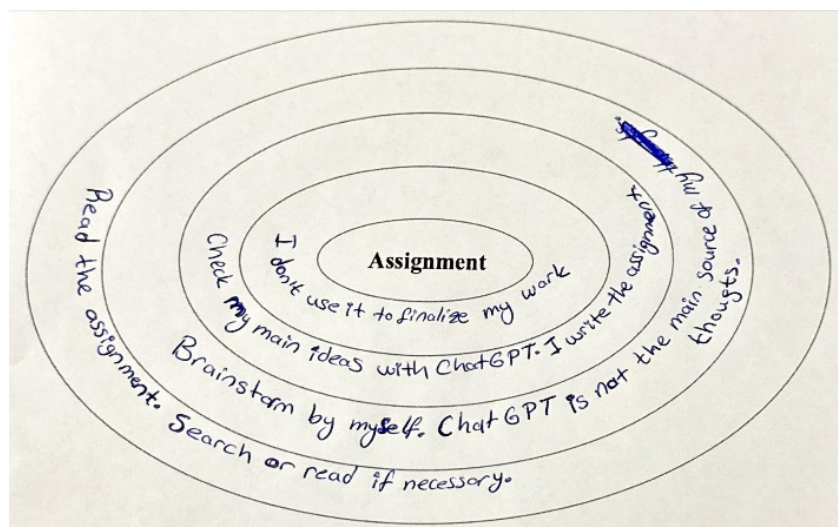 Assignment
I don't use it to finalize my work
Check my main ideas with ChatGPT. I write the assignment
Brainstorm by myself. ChatGPT is not the main source of my
thougts.
Read the assignment. Search or read if necessary.